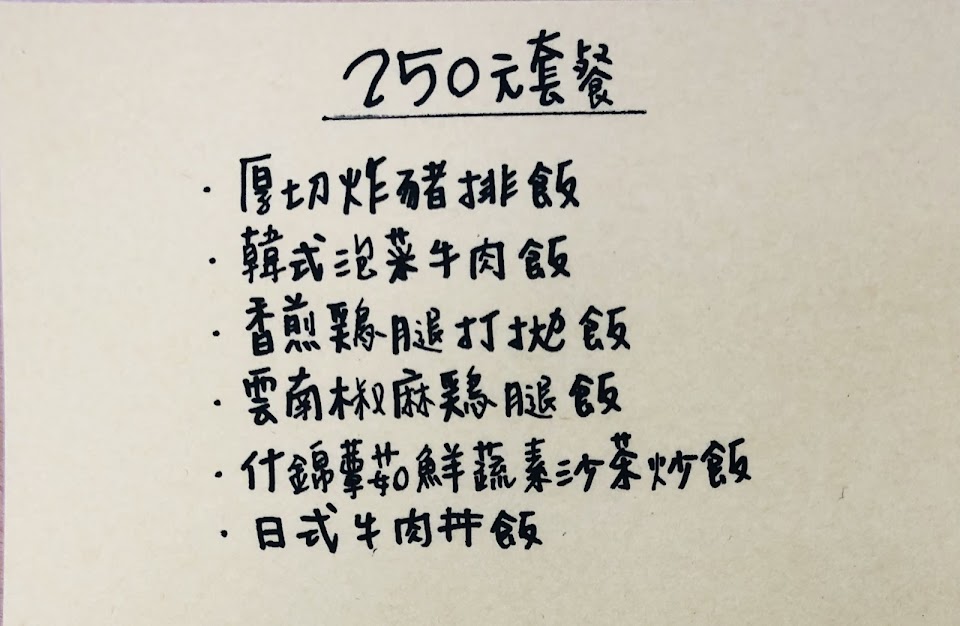 250元套餐
· 厚切炸豬排飯
· 韓式泡菜牛肉飯
· 香煎鷄腿打拋飯
· 雲南椒麻鷄腿飯
· 什錦蕈茹鮮蔬素沙茶炒飯
· 日式牛肉丼飯